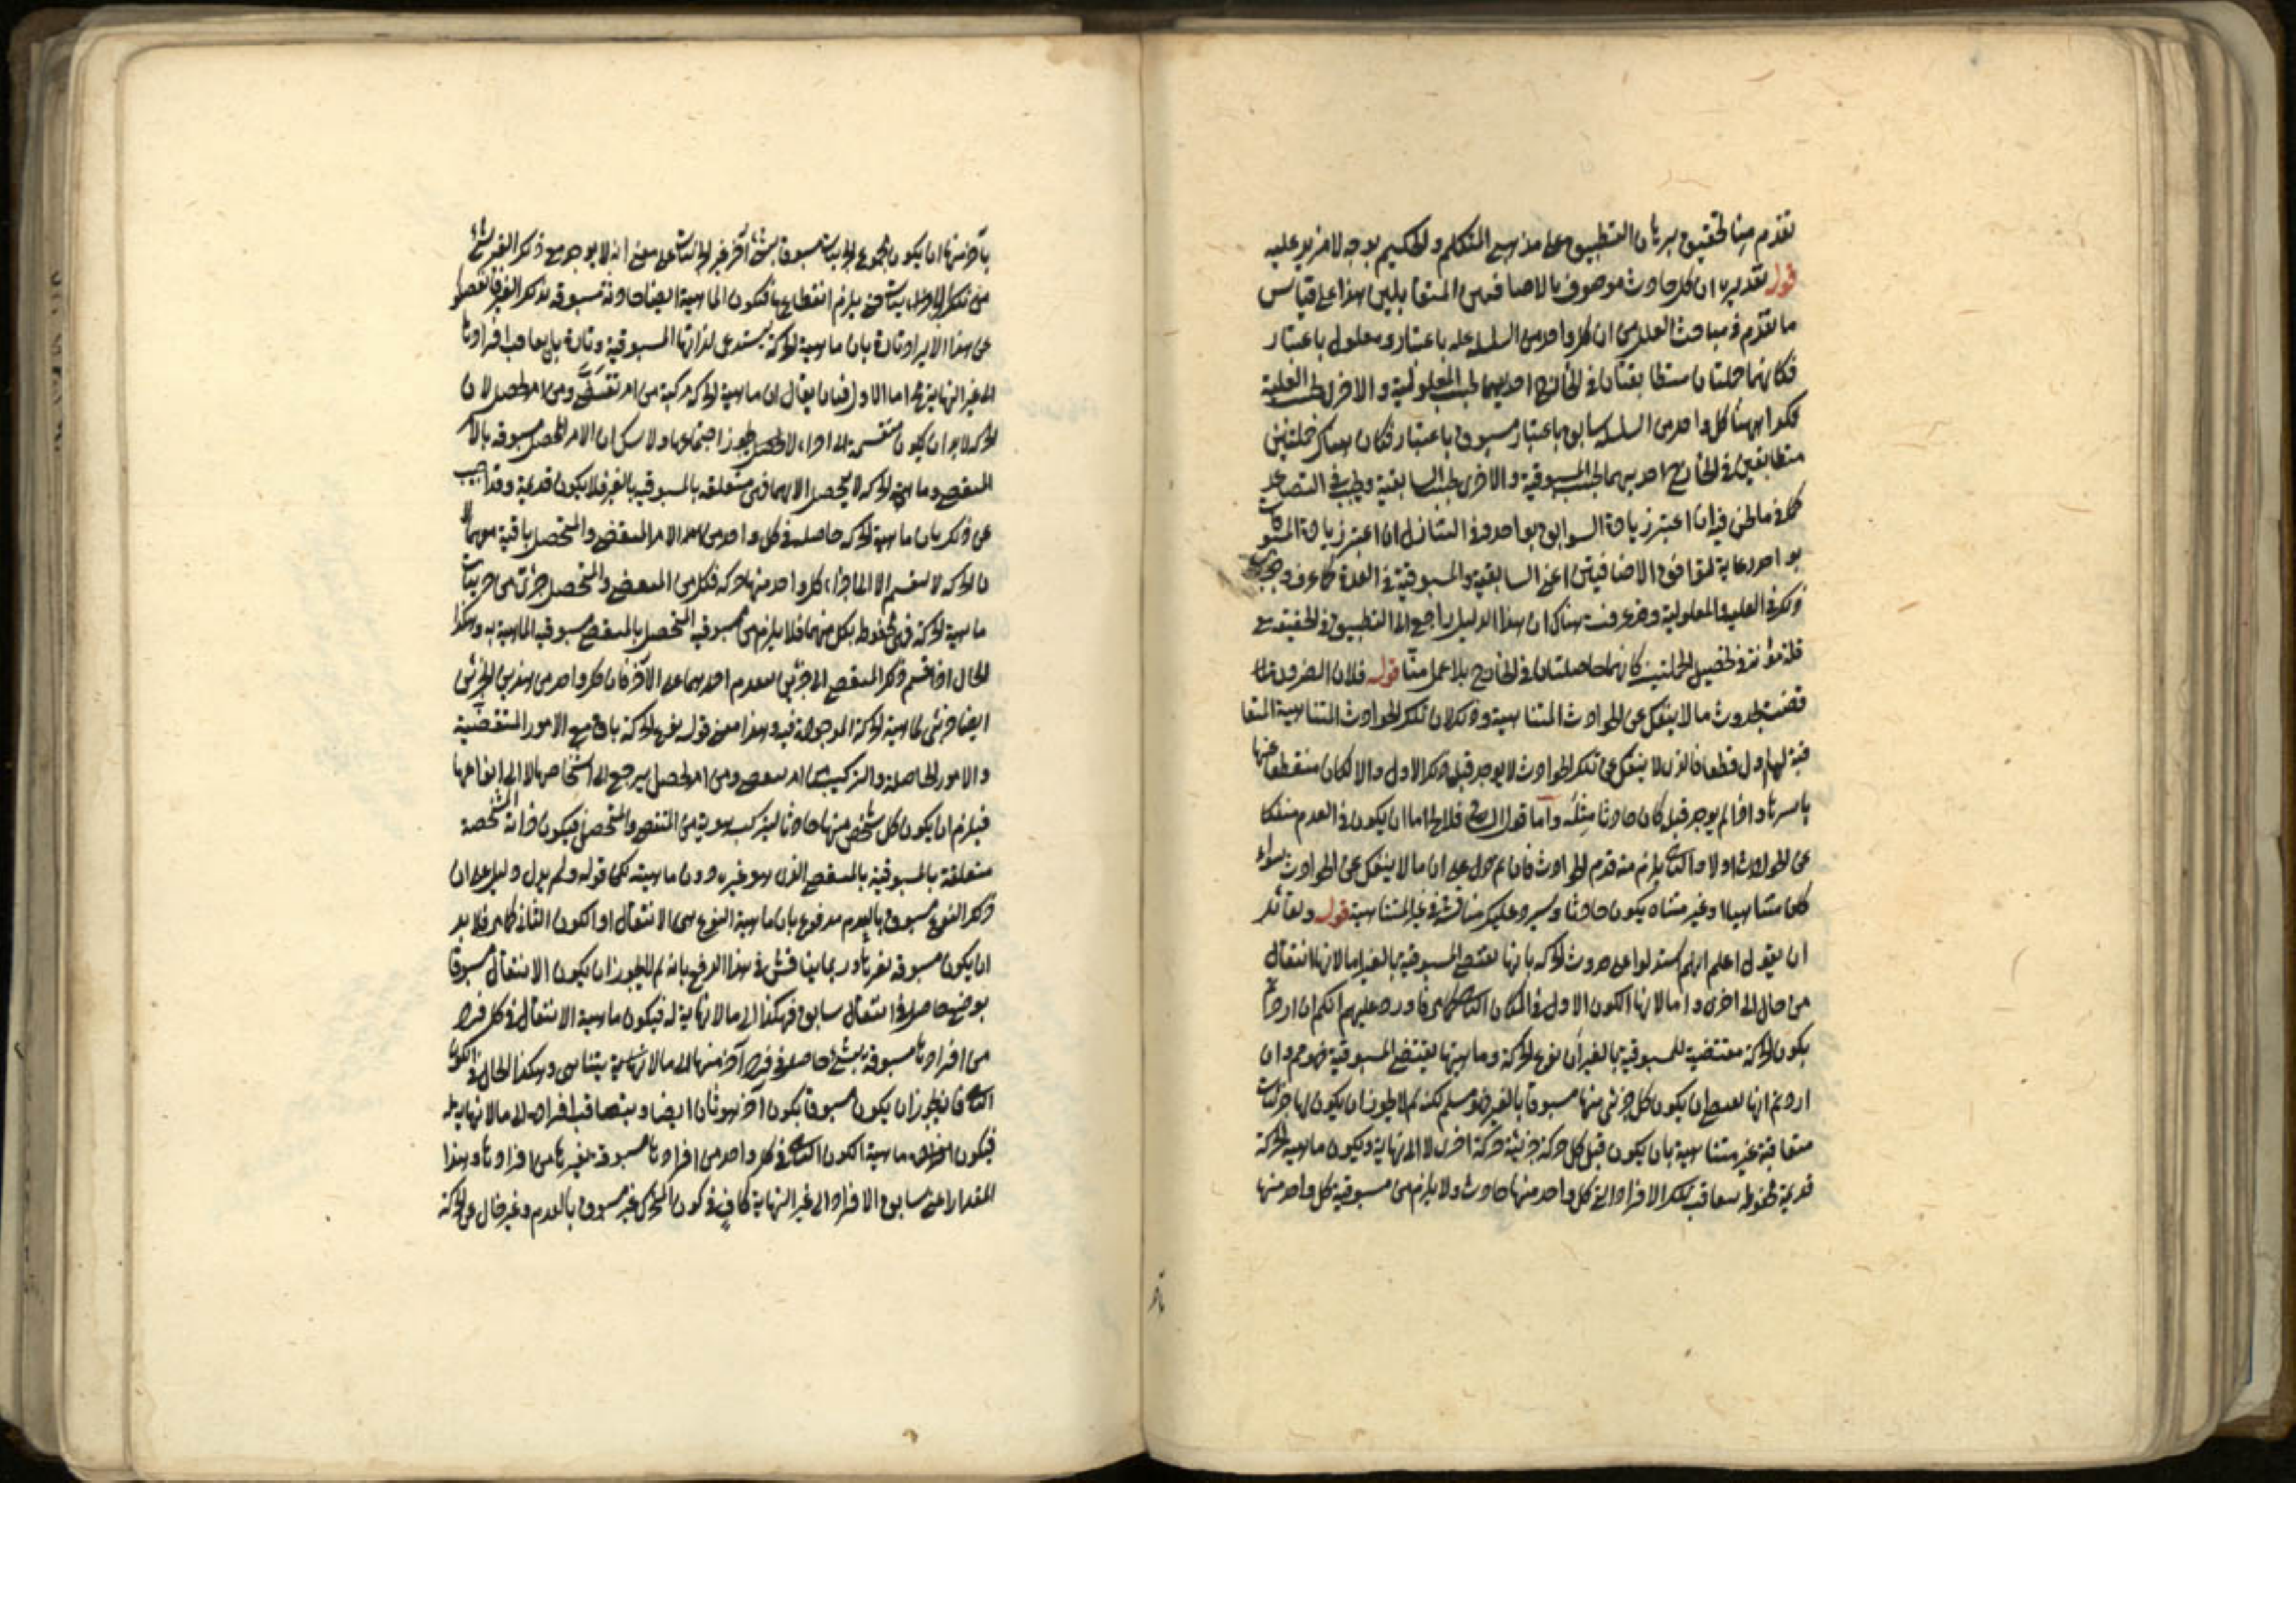 تقدم منا تحقيق برهان التطبيق على مذهبي المتكلم والحكيم بوجه لا مزيد عليه
قوله تقديره ان كل حادث موصوف بالاضافتين المتقابلتين هذا على قياس
ما تقدم في مباحث العلل من ان كل واحد من السلسلة علة باعتبار ومعلول باعتبار
فكانهما جملتان متطابقتان في الخارج احديهما بحسب المعلولية والاخرى بحسب العلية
فكذا ههنا كل واحد من السلسلة سابق باعتبار مسبوق باعتبار فكان هناك جملتين
متطابقتين في الخارج احديهما بحسب المسبوقية والاخرى بحسب السابقية ويجب في التصاعد
كما فيما نحن فيه ان اعتبر زيادة السوابق بواحد وفي التنازل ان اعتبر زيادة المسبوقات
بواحد رعاية لتوافق الاضافيتين اعني السابقية والمسبوقية في العدة كما عرف وجوب
ذلك في العلية والمعلولية وقد عرفت هناك ان هذا الدليل راجع الى التطبيق في الحقيقة مع
قلة مؤنته في تحصيل الجملتين كانهما حاصلتان في الخارج بلا عمل منا قوله فلان الضرورة
قضت بحدوث ما لا ينفك عن الحوادث المتناهية وذلك لان تلك الحوادث المتناهية المتعا
قبة لها اول قطعا فالذي لا ينفك عن تلك الحوادث لا يوجد قبل ذلك الاول والا لكان منقطعا عنها
باسرها واذا لم يوجد قبله كان حادثا مثله واما قول فلا يخ اما ان يكون في العدم منفكا
عن الحوادث اولا والثاني يلزم منه قدم الحوادث فان على ان ما لا ينفك عن الحوادث سواء
كان متناهيا او غير متناه يكون حادثا وسيرد عليك مناقشة في غير المتناهية قوله ولقائل
ان يقول اعلم انهم استدلوا على حدوث الحركة بانها تقتضي المسبوقية بالغير اما لانها انتقال
من حال الى اخرى واما لانها الكون الاول في المكان الثاني فاورد عليهم انكم ان اردتم
بكون الحركة مقتضية للمسبوقية بالغير ان نوع الحركة وماهيتها يقتضي المسبوقية فهو مم وان
اردتم انها تقتضي ان يكون كل جزئي منها مسبوقا بالغير فهو مسلم لكن لم لا يجوز ان يكون لها جزئيات
متعاقبة غير متناهية بان يكون قبل كل حركة جزئية حركة اخرى لا الى نهاية ويكون ماهية الحركة
قديمة محفوظة بتعاقب تلك الافراد التي كل واحد منها حادث ولا يلزم من مسبوقية كل واحد منها
باخر
باخر منها ان يكون مجموع الجزئيات مسبوقا بشيء آخر غير الجزئيات على معنى انه لا يوجد مع ذلك الغير شيء
من تلك الجزئيات حتى يلزم انقطاعها فتكون الماهية ايضا حادثة مسبوقة بذلك الغير
عن هذا الايراد تارة بان ماهية الحركة يستدعي لذاتها المسبوقية وتارة بان تعاقب افرادها
الى غير النهاية مح اما الاول فبان يقال ان ماهية الحركة مركبة من امر تقضى ومن امر تحصل لان
الحركة لا بد ان يكون منقسمة الى اجزاء لا يجوز اجتماعها ولا شك ان الامر المتحصل مسبوق بالامر
المنقضي وماهية الحركة لا يتحصل الا بهما فهي متعلقة بالمسبوقية بالغير فلا يكون قديمة وقد اجيب
عن ذلك بان ماهية الحركة حاصلة في كل واحد من الامر المنقضي والمتحصل باقية معهما
ان الحركة لا تنقسم الا الى اجزاء كل واحد منها حركة فكل من المنقضي والمتحصل جزئي من جزئيات
ماهية الحركة فهي محفوظة بكل منهما فلا يلزم من مسبوقية المتحصل بالمنقضي مسبوقية الماهية به وهكذا
الحال اذا قسم ذلك المنقضي الى جزئين يتقدم احدهما على الآخر فان كل واحد من هذين الجزئين
ايضا جزئي لماهية الحركة الموجودة فيه وهذا معنى قوله نوع الحركة باق مع الامور المتقضية
والامور الحاصلة والتركيب من امر تقضى ومن امر تحصل يرجع الى اشخاصها لا الى انواعها
فيلزم ان يكون كل شخص منها حادثا لتركب هويته من المنقضي والمتحصل فيكون ذاته المشخصة
متعلقة بالمسبوقية بالمنقضي الذي هو غيره دون ماهيته لكن قوله ولم يدل دليل على ان
ذلك النوع مسبوق بالعدم مدفوع بان ماهية النوع هي الانتقال او الكون الثاني كما مر فلا بد
ان يكون مسبوقة بغيرها وربما يناقش في هذا الدفع بانه لم لا يجوز ان يكون الانتقال مسبوقا
بوضع حاصل في انتقال سابق فهكذا الى ما لا نهاية له فيكون ماهية الانتقال في كل فرد
من افرادها مسبوقة بشيء حاصل في فرد آخر منها الى ما لا نهاية يتناهى وهكذا الحال في الكون
الثاني فانه يجوز ان يكون مسبوقا بكون آخر هو ثان ايضا ويتعاقب افراده الى ما لا نهاية له
فيكون ماهية الكون الثاني في كل واحد من افرادها مسبوقة بغيرها من افرادها وهذا
المقدار اعني سابق الافراد الى غير النهاية كاف في كون المتحرك غير مسبوق بالعدم وغير خال عن الحركة